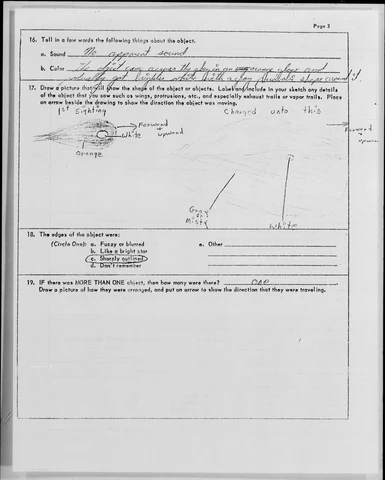 Page 3
16. Tell in a few words the following things about the object.
a. Sound No apparent sound
b. Color The object came across the sky in an orange color and
got brighter white with a gray
17. Draw a picture that will show the shape of the object or objects. Label and include in your sketch any details
of the object that you saw such as wings, protrusions, etc., and especially exhaust trails or vapor trails. Place
an arrow beside the drawing to show the direction the object was moving.
1st Sighting
Changed unto this
Forward
+
upward
Forward
+
upwar
White
Orange
Gray
or
Misty
White
18. The edges of the object were:
(Circle One): a. Fuzzy or blurred e. Other
b. Like a bright star
c. Sharply outlined
d. Don't remember
19. IF there was MORE THAN ONE object, then how many were there? one
Draw a picture of how they were arranged, and put an arrow to show the direction that they were traveling.